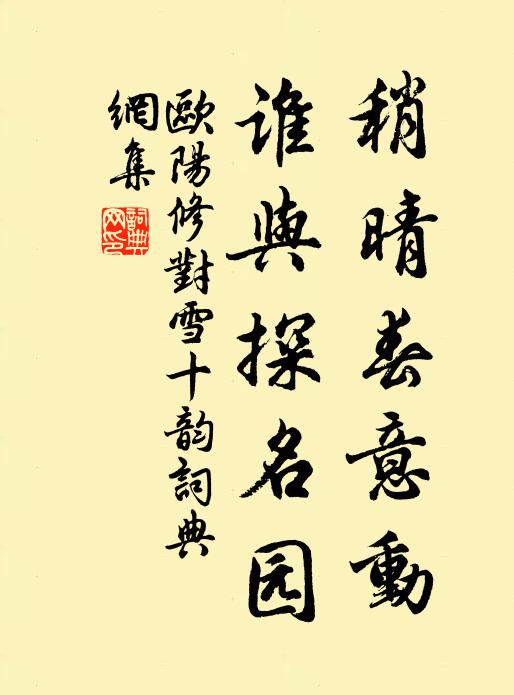 稍晴春意動
誰與探名园
歐陽修對雪十韵詞典
網集
詞典
网印